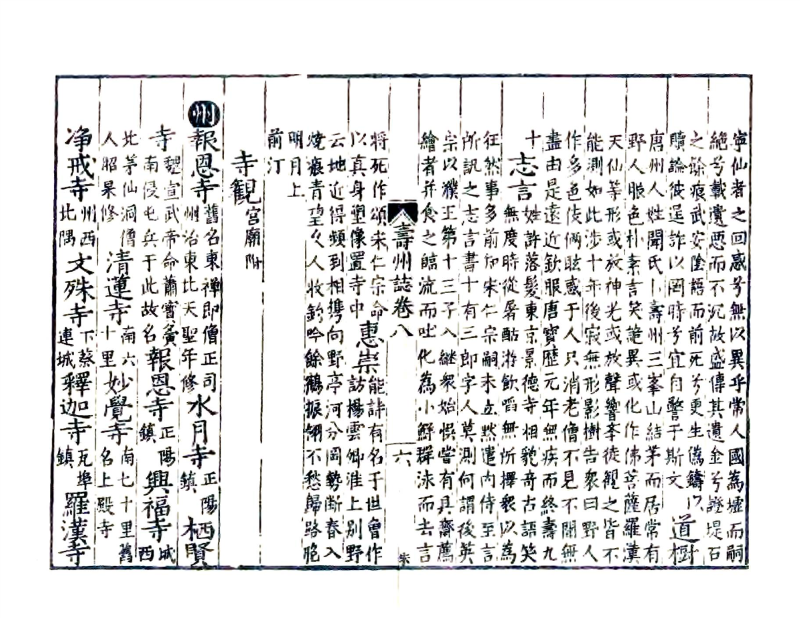 寧仙者之回惑兮無以異乎常人國為墟而嗣
絕兮載遺惡而不沉故盛傳其遺金兮證堤石
之餘痕武安陰禍而前死兮更生偽鑄以
贖論徒逞詐以罔時兮宜自警于斯文 道樹
唐州人姓聞氏卜壽州三峯山結茅而居常有
野人服色朴素言笑詭異或化作佛菩薩羅漢
天仙等形或放神光或放聲響李徒覩之皆不
能測如此涉十年後寂無形影樹告衆曰野人
作多色伎倆眩惑于人只消老僧不見不聞無
盡由是遠近欽服唐寶歷元年無疾而終壽九
十 志言 姓許落髮東京景德寺相貌奇古語笑
無度時從屠酤游飲啗無所擇衆以為
狂然事多前知宋仁宗嗣未立默遣內侍至言
所訊之志言書十有三郎字人莫測何謂後英
宗以濮王第十三子入繼衆始悟嘗有具齋薦
繪者并食之臨流而吐化為小鮮羣泳而去言
壽州誌卷八 六 朱
將死作頌宋仁宗命 惠崇 能詩有名于世會作
以真身塑像置寺中 訪楊雲卿淮上別野
云地近得頻到相携向野亭河分岡勢斷春入
燒痕青望久人收釣吟餘鶴振翎不愁歸路晚
明月上
前汀
寺觀 宮廟附
州 報恩寺 舊名東禪即僧正司
州治東北天聖年修 水月寺 正陽
鎮 栖賢
寺 魏宣武帝命蕭寶夤
南侵屯兵于此故名 報恩寺 正陽
鎮 興福寺 城
西
北茅仙洞僧
人昭果修 清蓮寺 南六
十里 妙覺寺 南七十里舊
名上殿寺
净戒寺 州西
北隅 文殊寺 下蔡
連城 釋迦寺 瓦埠
鎮 羅漢寺